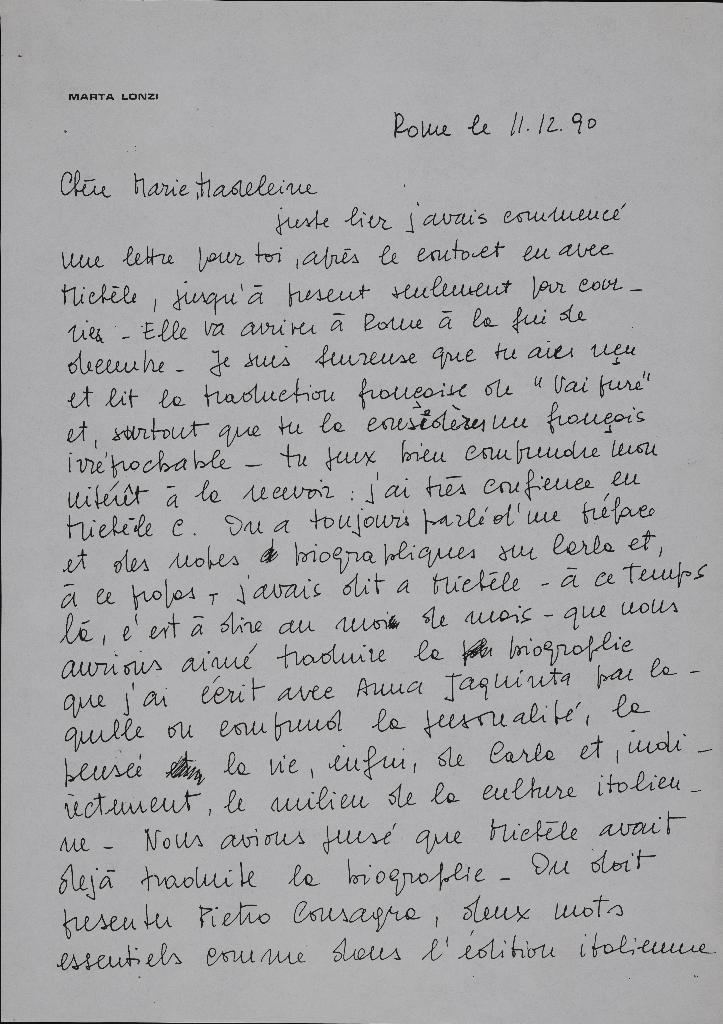 MARTA LONZI
Rome le 11.12.90
Chère Marie, Madeleine
juste hier j'avais commencé
une lettre pour toi, après le contact eu avec
Michèle, jusqu'à present seulement par cour-
rier - Elle va arriver à Rome à la fin de
decembre - Je suis heureuse que tu aies reçu
et lit la traduction française de "Vai pure"
et, surtout que tu la considères un français
irréprochable - tu peux bien comprendre mon
intérêt à la recevoir : j'ai très confience en
Michèle C. On a toujours parlé d'une préface
et des notes biographiques sur Carla et,
à ce propos, j'avais dit a Michèle - à ce temps
là, c'est à dire au mois de mars - que nous
aurions aimé traduire la biographie
que j'ai écrit avec Anna Jaquinta par la-
quelle on comprend la personalité, la
pensée la vie, enfin, de Carla et, indi-
rectement, le milieu de la culture italien-
ne - Nous avions pensé que Michèle avait
dejà traduite la biographie - On doit
presenter Pietro Consagra, deux mots
essentiels comme dans l'édition italienne